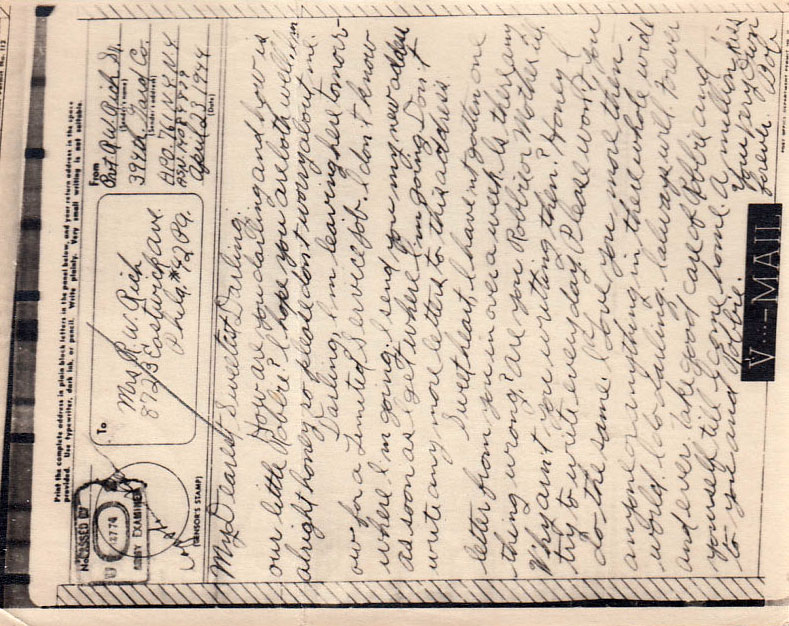 Print the complete address in plain block letters in the panel below, and your return address in the space
provided. Use typewriter, dark ink, or pencil. Write plainly. Very small writing is not suitable.
PASSED BY
12774
ARMY EXAMINER
(CENSOR'S STAMP)
To
Mrs R.W. Rich
8723 Eastwick Ave.
Phila. #42 Pa.
From
Pvt R.W. Rich Jr.
(Sender's name)
394th Gard Co.
(Sender's address)
A.P.O. 761 N.Y. N.Y.
April 23 1944
My Dearest Sweetest Darling
How are you darling and how is
our little Robbie? I hope you are both well. I'm
alright honey so please dont worry about me.
Darling, I'm leaving here tomorr-
ow for a Limited Service job. I don't know
where I'm going. I send you my new address
as soon as I get where I'm going. Don't
write any more letters to this address
Sweetheart, I haven't gotten one
letter from you in over a week. Is there any
thing wrong? are you Robbie or Mother ill.
Why ain't you writting then? Honey I
try to write everyday. Please won't you
do the same. I Love you more then
anyone or anything in there whole wide
world. I do darling. I always will, Forever
and ever. take good care of Robbie and
yourself till I come home. A million kiss
to you and Robbie.
Your very Own
forever
Bob
V···—MAIL